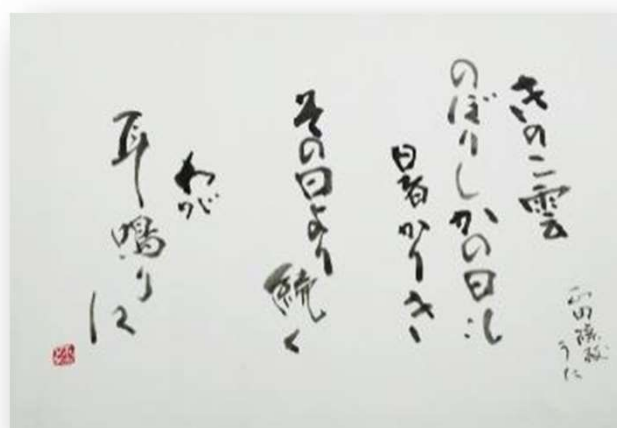 うた
きのこ雲
のぼりしかの日も
暑かりき
その日より続く
わが
耳鳴りは